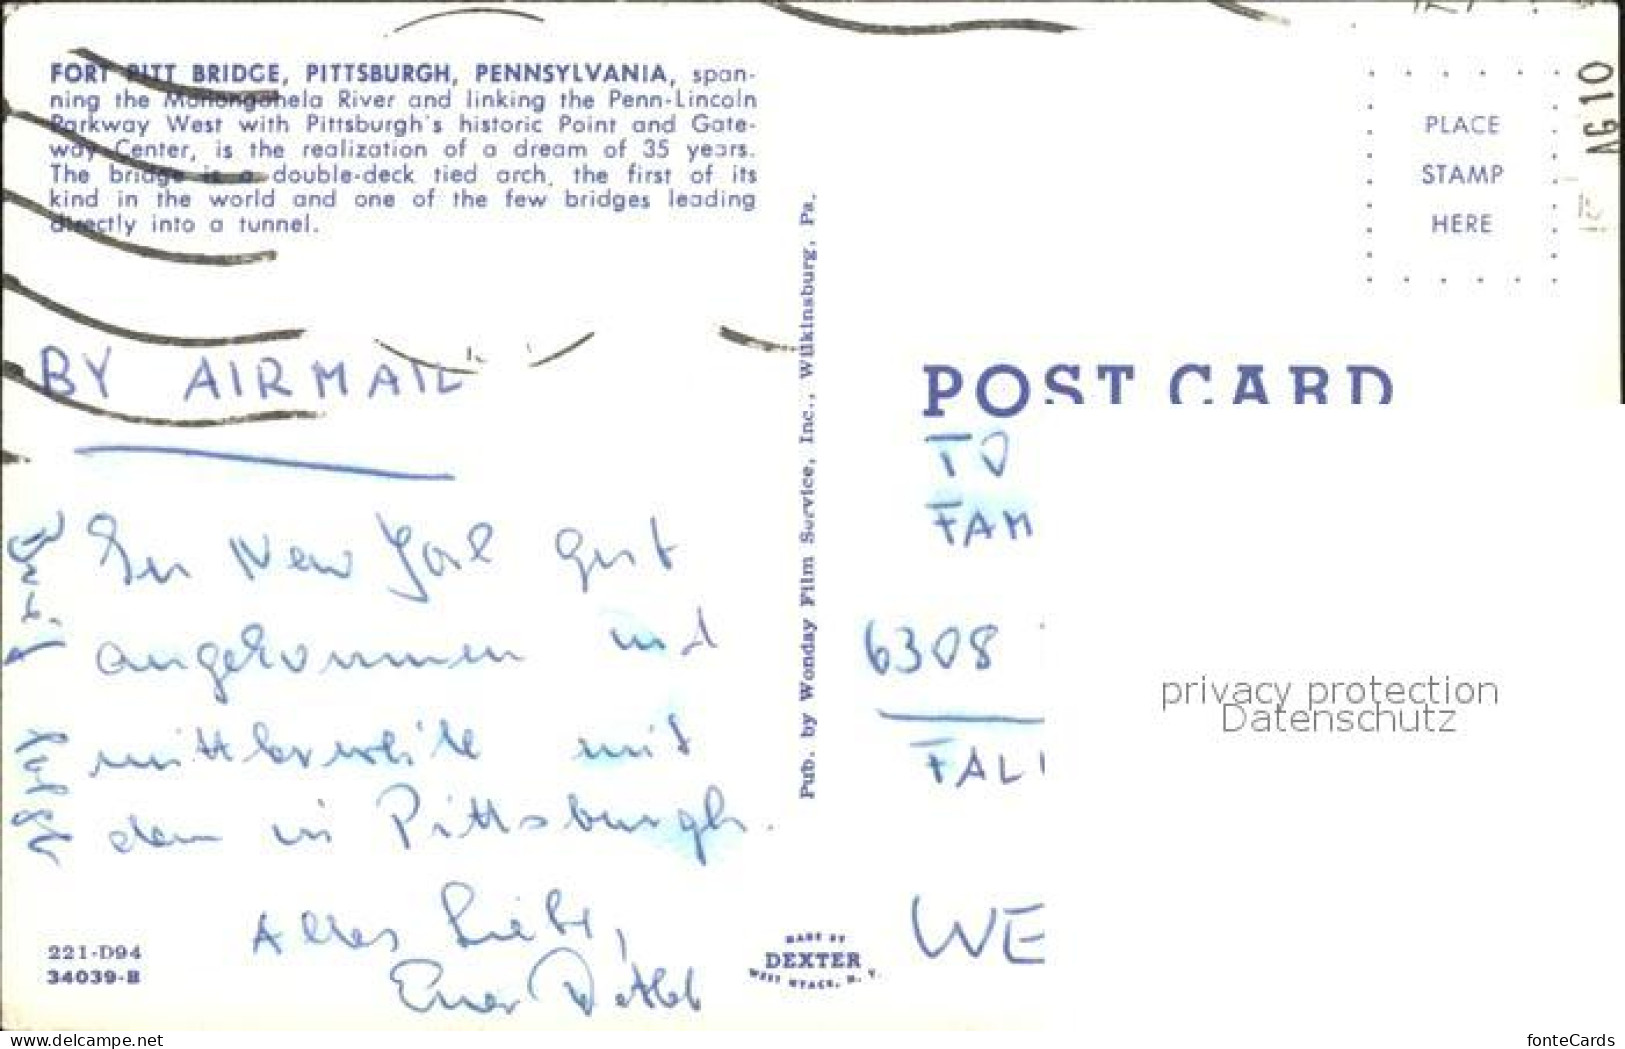 FORT PITT BRIDGE, PITTSBURGH, PENNSYLVANIA, span-
ning the Monongahela River and linking the Penn-Lincoln
Parkway West with Pittsburgh's historic Point and Gate-
way Center, is the realization of a dream of 35 years.
The bridge is a double-deck tied arch, the first of its
kind in the world and one of the few bridges leading
directly into a tunnel.
BY AIRMAIL
In New York gut
angekommen und
mittlerweile mit
dem in Pittsburgh.
Alles Liebe,
Euer
221-D94
34039-B
Pub. by Wonday Film Service, Inc., Wilkinsburg, Pa.
MADE BY
DEXTER
WEST NYACK, N. Y.
AG10
PLACE
STAMP
HERE
POST CARD
TO
FAM
6308
FALI
WE
privacy protection
Datenschutz
www.delcampe.net
fonteCards